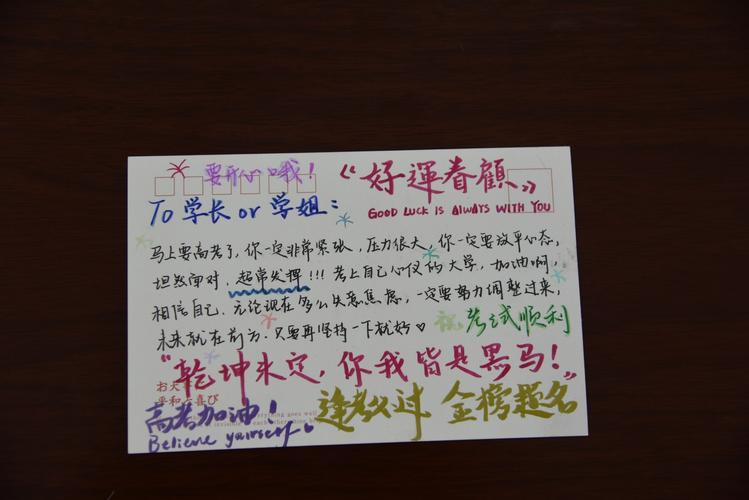 要开心哦！
《好運眷顧》
GOOD LUCK IS AlWAYS WITH YOU
To 学长 or 学姐：
马上要高考了，你一定非常紧张，压力很大，你一定要放平心态，
坦然面对，超常发挥!!! 考上自己心仪的大学，加油啊，
相信自己，无论现在多么失意焦虑，一定要努力调整过来，
未来就在前方，只要再坚持一下就好♡
祝考试顺利
“乾坤未定，你我皆是黑马！”
高考加油！
逢考必过 金榜题名
Believe yourself